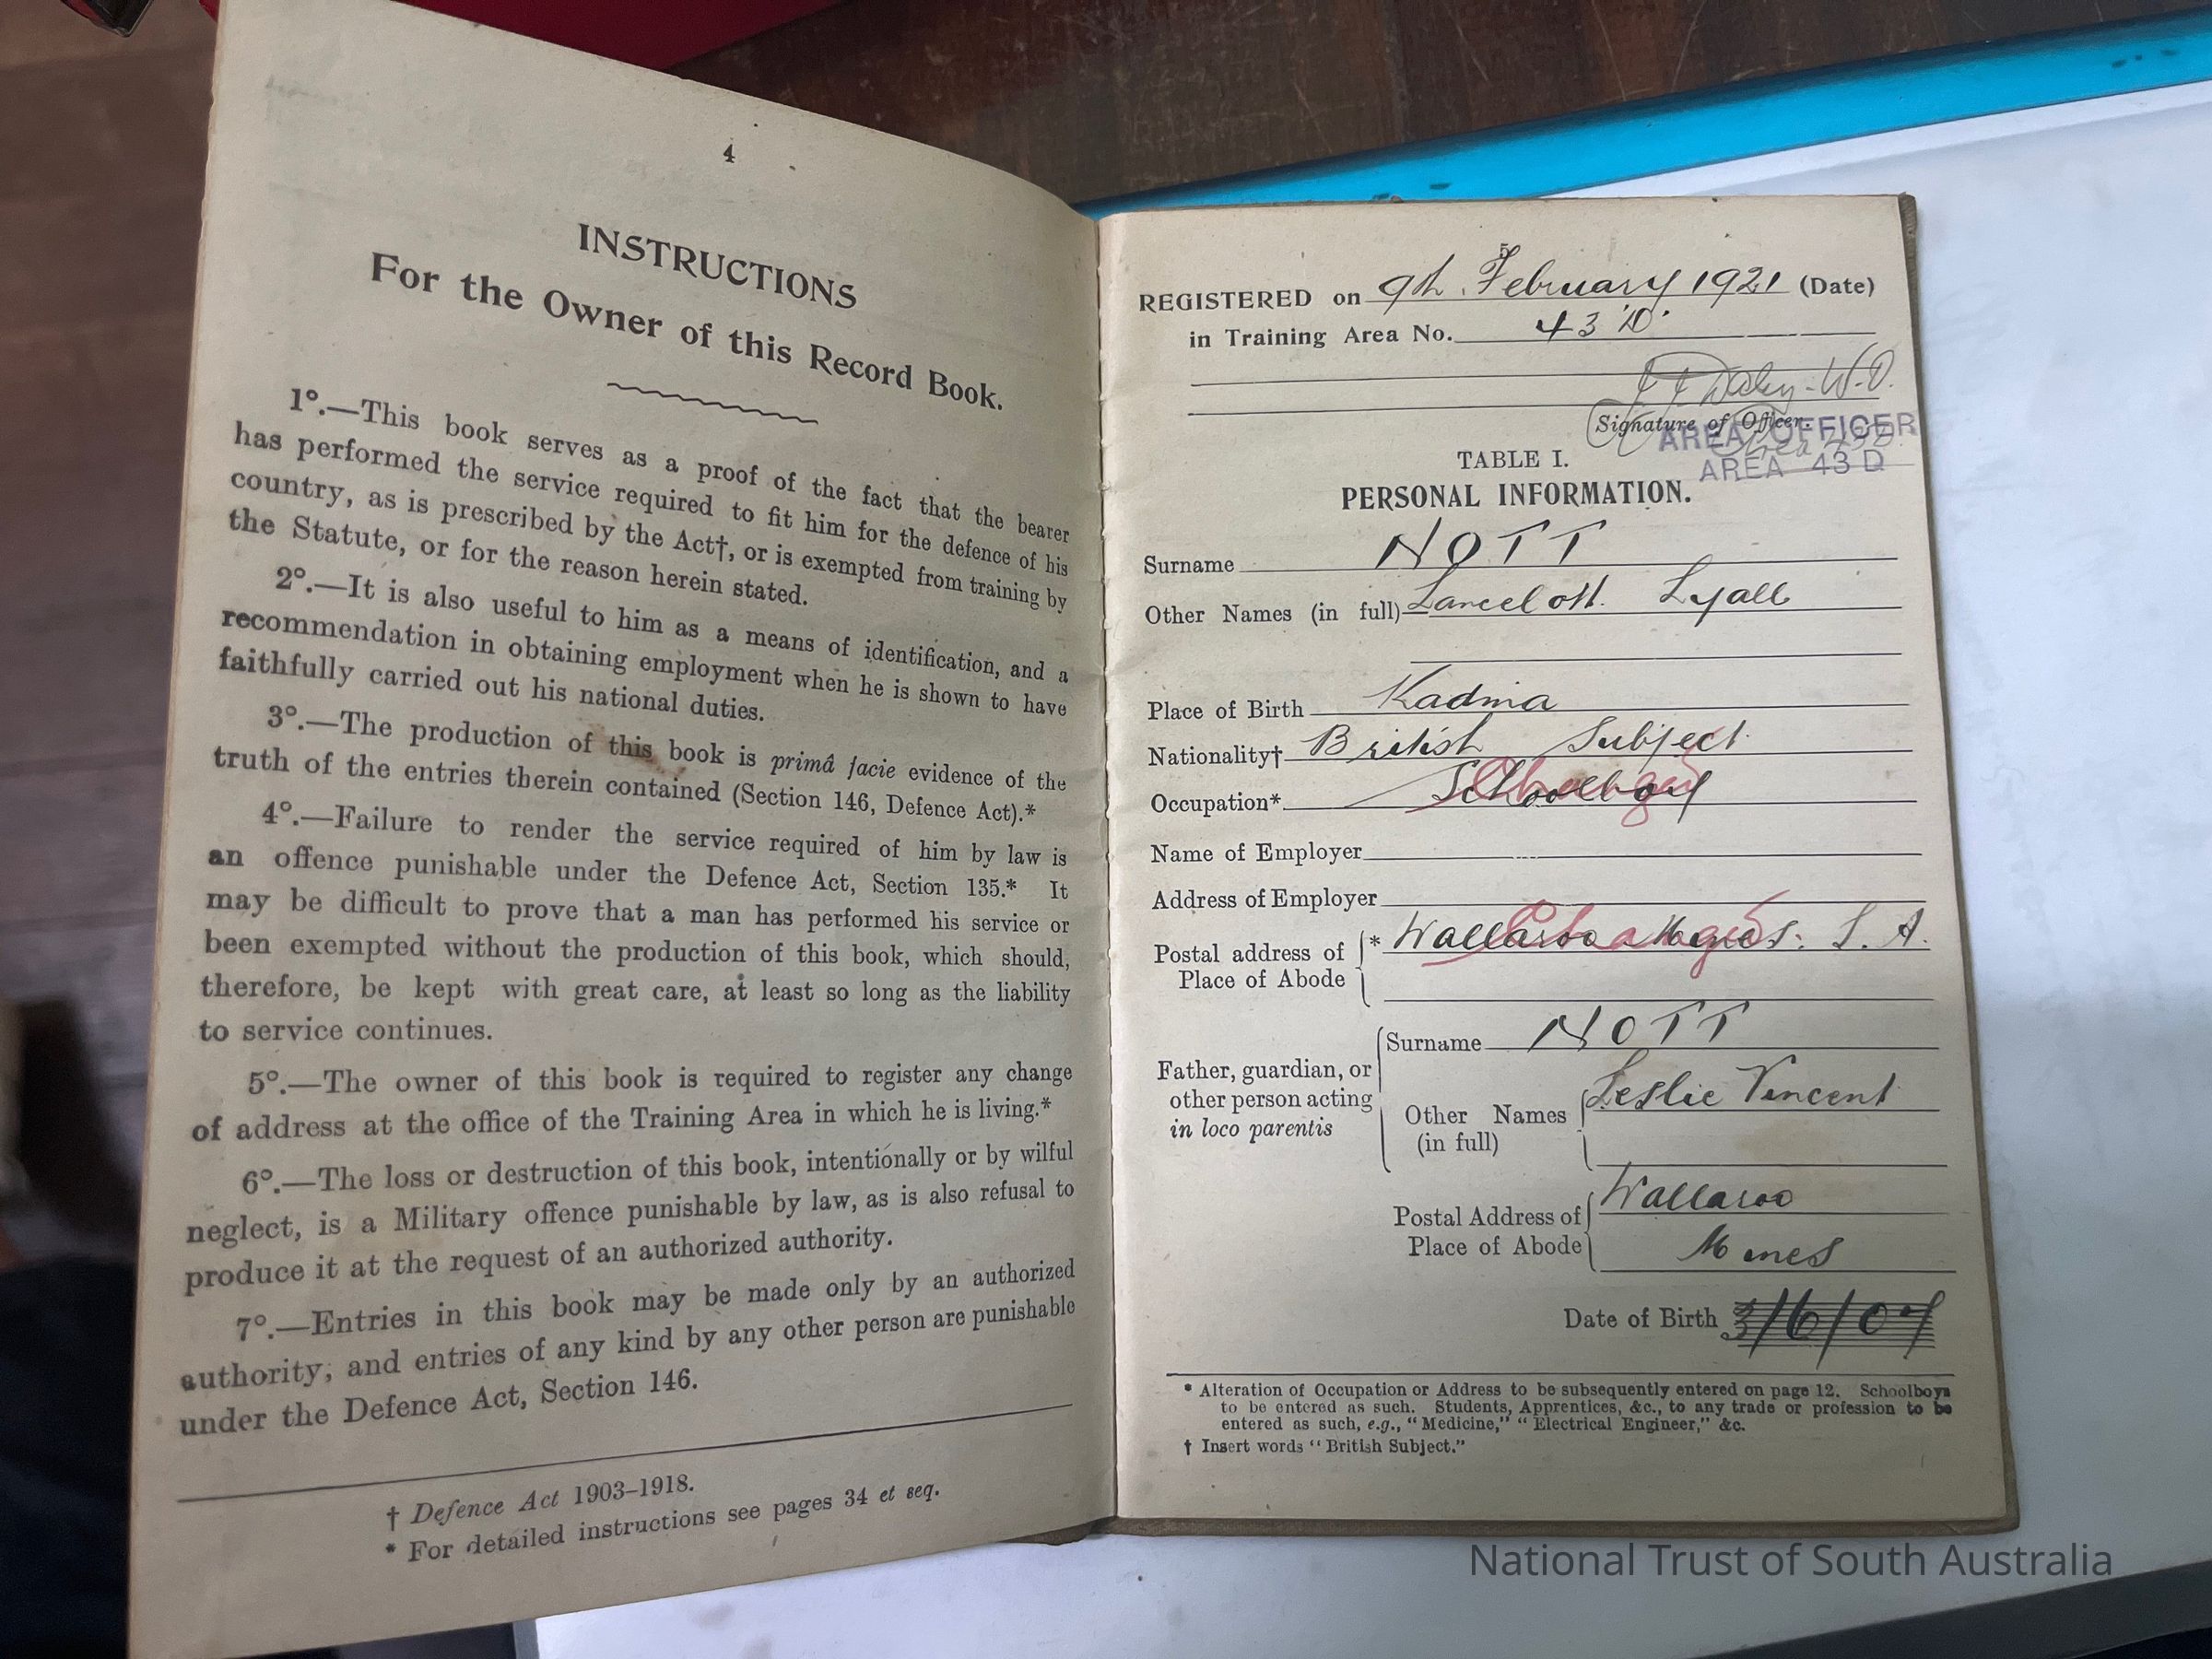 4
INSTRUCTIONS
For the Owner of this Record Book.
1°.—This book serves as a proof of the fact that the bearer
has performed the service required to fit him for the defence of his
country, as is prescribed by the Act†, or is exempted from training by
the Statute, or for the reason herein stated.
2°.—It is also useful to him as a means of identification, and a
recommendation in obtaining employment when he is shown to have
faithfully carried out his national duties.
3°.—The production of this book is primâ facie evidence of the
truth of the entries therein contained (Section 146, Defence Act).*
4°.—Failure to render the service required of him by law is
an offence punishable under the Defence Act, Section 135.* It
may be difficult to prove that a man has performed his service or
been exempted without the production of this book, which should,
therefore, be kept with great care, at least so long as the liability
to service continues.
5°.—The owner of this book is required to register any change
of address at the office of the Training Area in which he is living.*
6°.—The loss or destruction of this book, intentionally or by wilful
neglect, is a Military offence punishable by law, as is also refusal to
produce it at the request of an authorized authority.
7°.—Entries in this book may be made only by an authorized
authority, and entries of any kind by any other person are punishable
under the Defence Act, Section 146.
† Defence Act 1903–1918.
* For detailed instructions see pages 34 et seq.
5
REGISTERED on 9th February 1921 (Date)
in Training Area No. 43 'D'
Signature of Officer.
AREA OFFICER
AREA 43 D
TABLE I.
PERSONAL INFORMATION.
Surname NOTT
Other Names (in full) Lancelott Lyall
Place of Birth Kadina
Nationality† British Subject
Occupation* Schoolboy Changed
Name of Employer
Address of Employer
Postal address of Place of Abode * Wallaroo Mines. S. A. Changed
Father, guardian, or other person acting in loco parentis
Surname NOTT
Other Names (in full) Leslie Vincent
Postal Address of Place of Abode Wallaroo
Mines
Date of Birth 3/6/07
* Alteration of Occupation or Address to be subsequently entered on page 12. Schoolboys
to be entered as such. Students, Apprentices, &c., to any trade or profession to be
entered as such, e.g., "Medicine," "Electrical Engineer," &c.
† Insert words "British Subject."
National Trust of South Australia